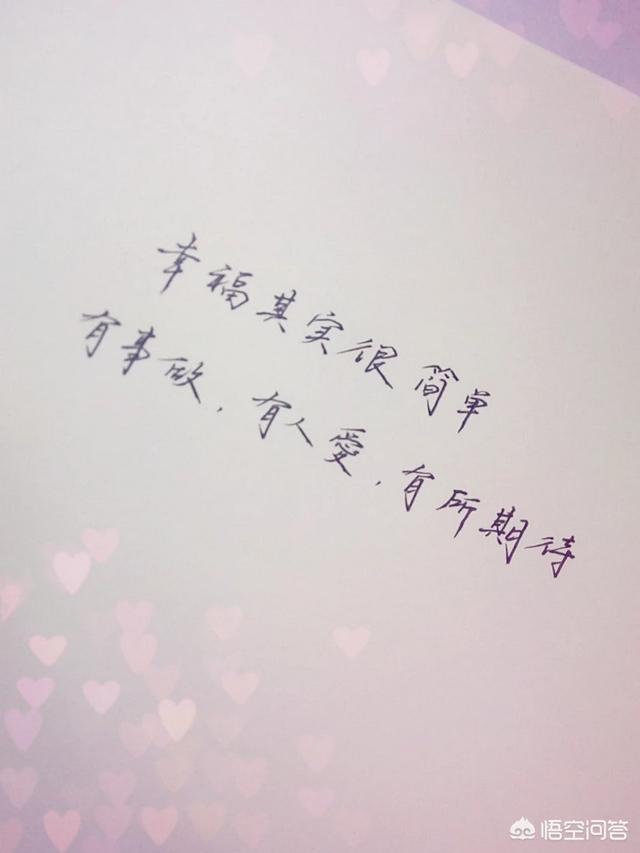 幸福其实很简单
有事做，有人爱，有所期待
悟空问答